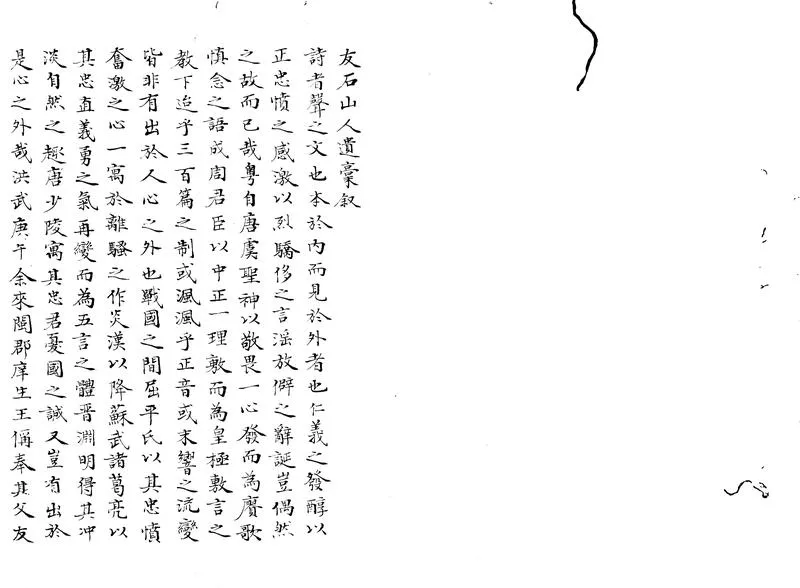 友石山人遺稾叙
詩者聲之文也本於内而見於外者也仁義之發醇以
正忠憤之感激以烈驕侈之言淫放僻之辭誕豈偶然
之故而已哉粤自唐虞聖神以敬畏一心發而為賡歌
慎念之語成周君臣以中正一理敷而為皇極敷言之
教下迨乎三百篇之制或渢渢乎正音或末響之流變
皆非有出於人心之外也戰國之間屈平氏以其忠憤
奮激之心一寓於離騷之作炎漢以降蘇武諸葛亮以
其忠直義勇之氣再變而為五言之體晋淵明得其冲
淡自然之趣唐少陵寓其忠君憂國之誠又豈有出於
是心之外哉洪武庚午余來閩郡庠生王偁奉其父友